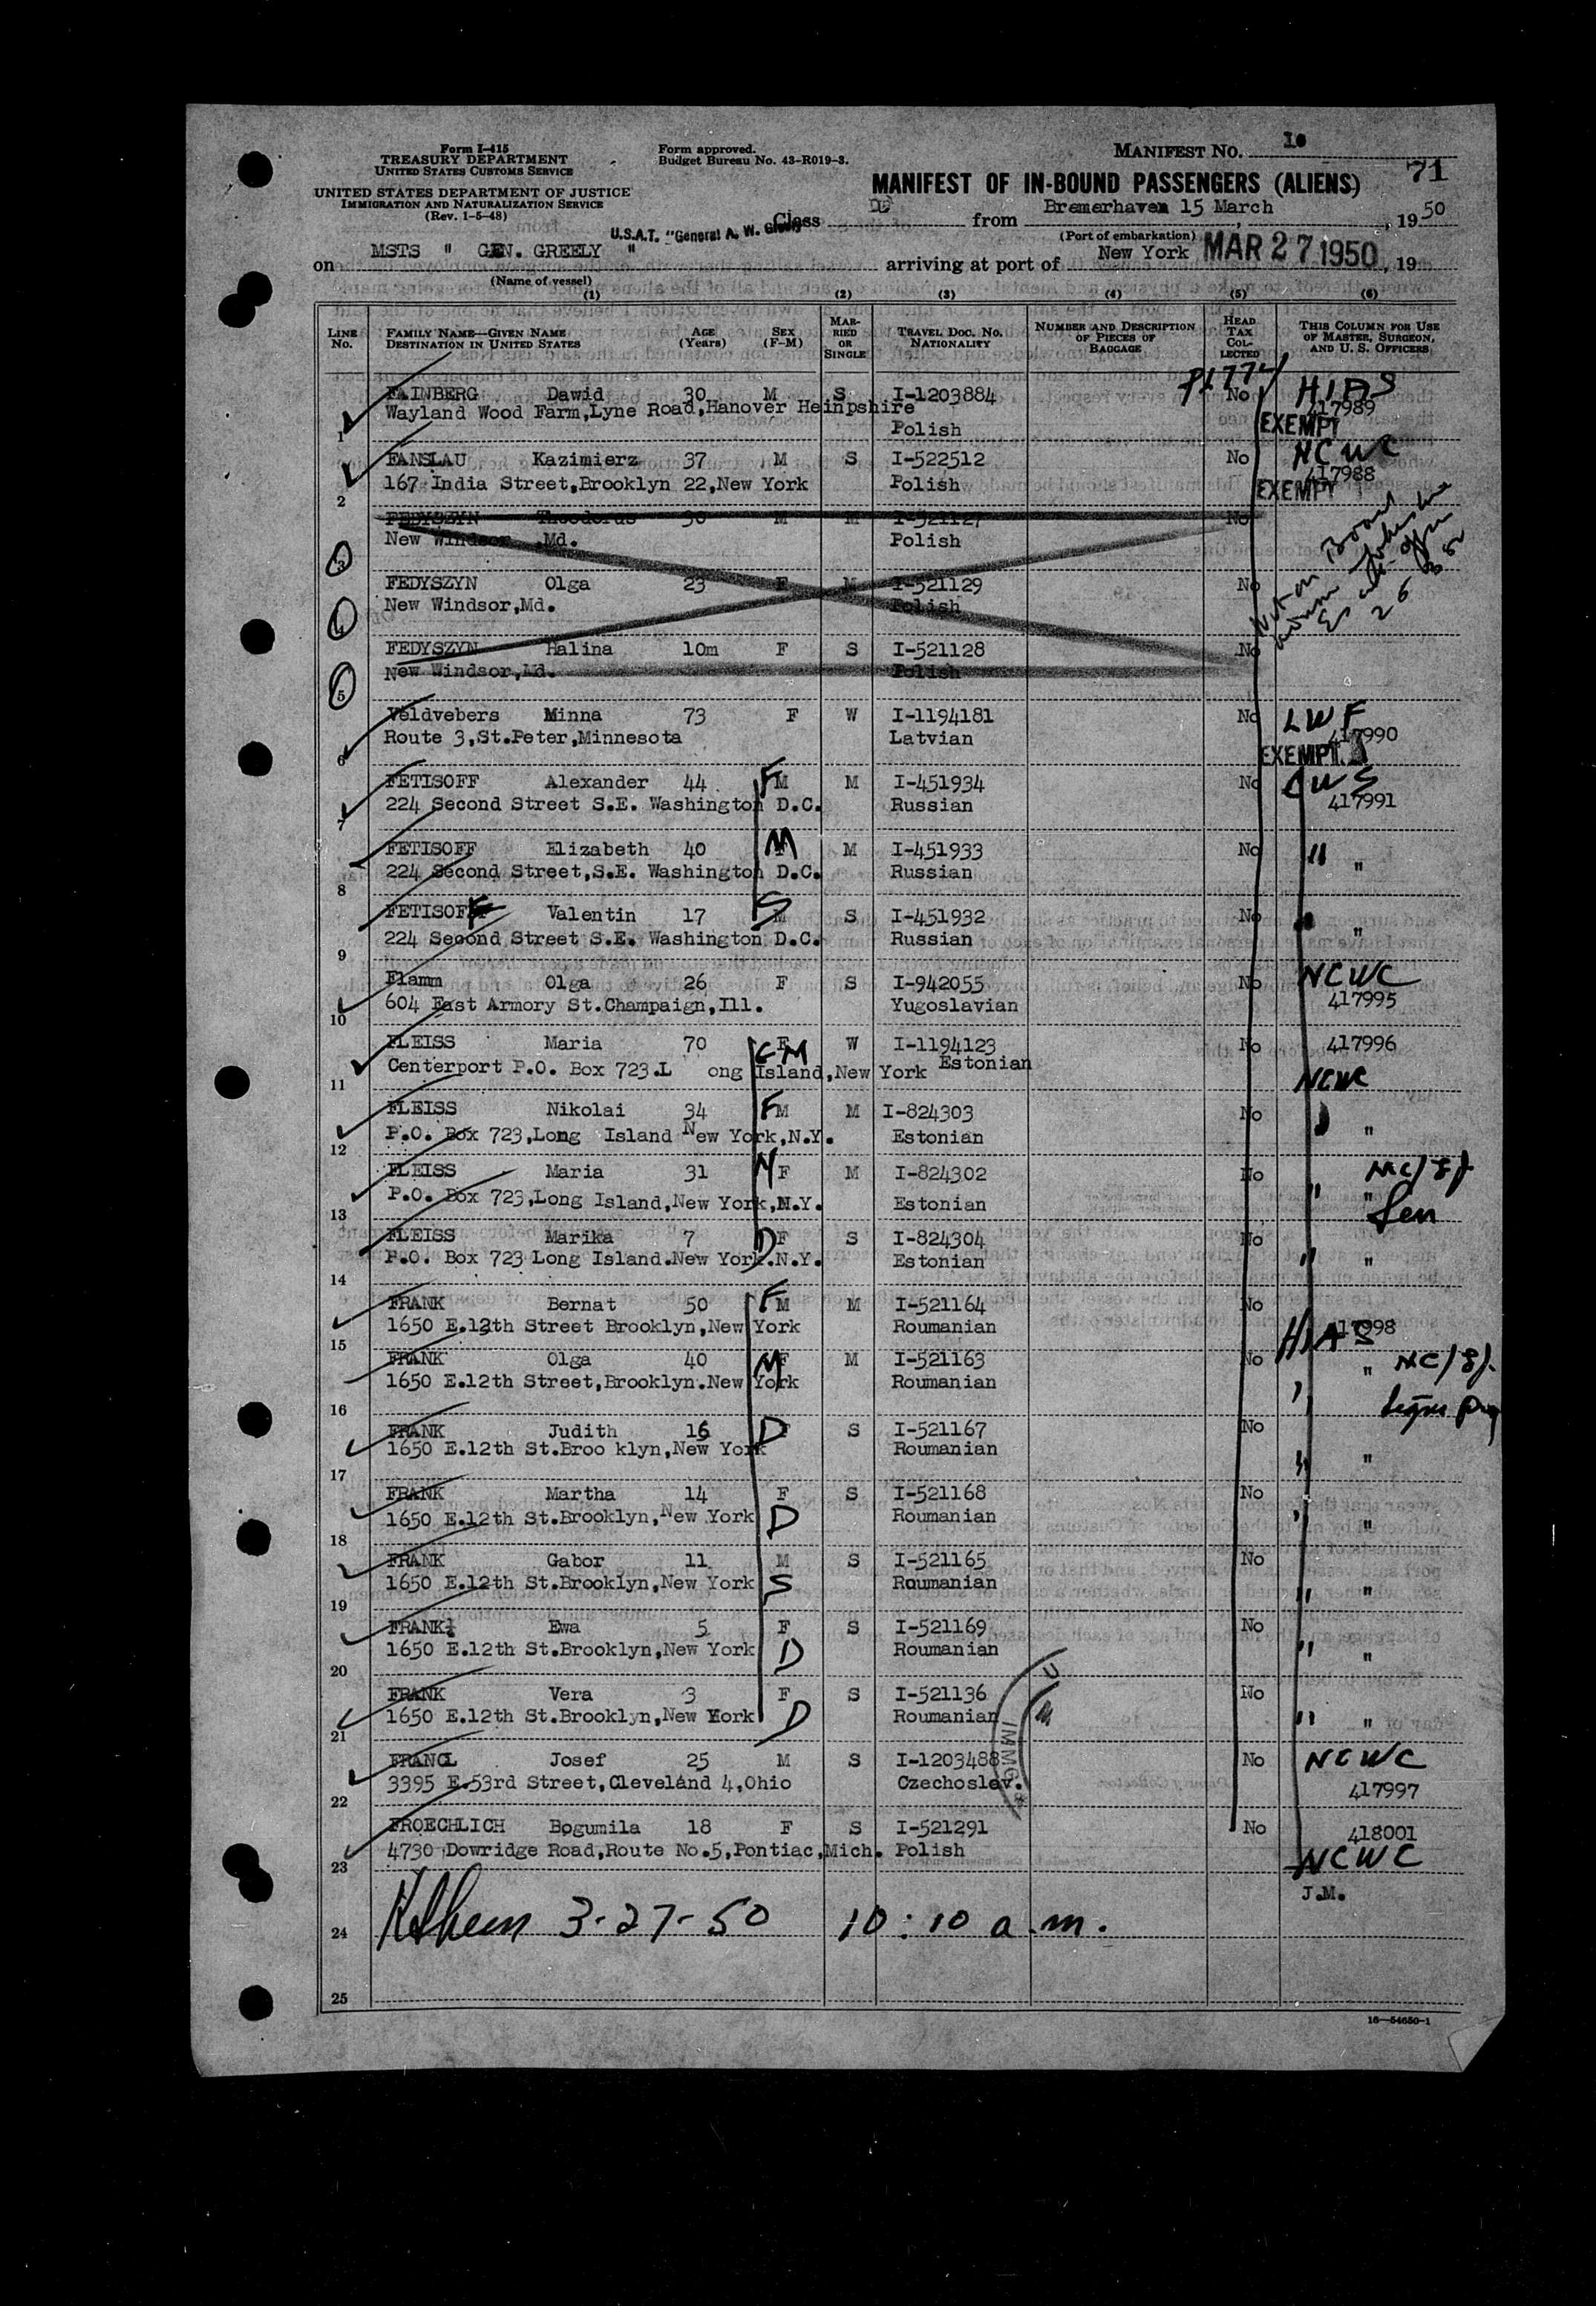 Form I-415
TREASURY DEPARTMENT
UNITED STATES CUSTOMS SERVICE
UNITED STATES DEPARTMENT OF JUSTICE
IMMIGRATION AND NATURALIZATION SERVICE
(Rev. 1-5-48)
Form approved.
Budget Bureau No. 43-R019-3.
MANIFEST NO. 10
71
MANIFEST OF IN-BOUND PASSENGERS (ALIENS)
Class from Bremerhaven 15 March, 1950
(Port of embarkation)
U.S.A.T. "General A. W. Greely"
on MSTS " GEN. GREELY " arriving at port of New York MAR 27 1950, 19
(Name of vessel)
(1) (2) (3) (4) (5) (6)
LINE NO. FAMILY NAME—GIVEN NAME DESTINATION IN UNITED STATES AGE (Years) SEX (F-M) MARRIED OR SINGLE TRAVEL DOC. NO. NATIONALITY NUMBER AND DESCRIPTION OF PIECES OF BAGGAGE HEAD TAX COLLECTED THIS COLUMN FOR USE OF MASTER, SURGEON, AND U. S. OFFICERS
PL774
FAINBERG Dawid 30 M S I-1203884 No HIAS
Wayland Wood Farm,Lyne Road,Hanover Heinpshire 417989
1 Polish EXEMPT
FANSLAU Kazimierz 37 M S I-522512 No NCWC
167 India Street,Brooklyn 22,New York Polish 417988
2 EXEMPT
FEDYSZYN Theodorus 30 M M I-521127 No
New Windsor ,Md. Polish
3 Not on Board
FEDYSZYN Olga 23 F M I-521129 No
New Windsor,Md. Polish
4
FEDYSZYN Halina 10m F S I-521128 No
New Windsor,Md. Polish
5
Veldvebers Minna 73 F W I-1194181 No LWF
Route 3,St.Peter,Minnesota Latvian 417990
6 EXEMPT
FETISOFF Alexander 44 F M M I-451934 No CWS
224 Second Street S.E. Washington D.C. Russian 417991
7
FETISOFF Elizabeth 40 M F M I-451933 No "
224 Second Street,S.E. Washington D.C. Russian "
8
FETISOFF Valentin 17 S M S I-451932 No "
224 Second Street S.E. Washington D.C. Russian "
9
Flamm Olga 26 F S I-942055 No NCWC
604 East Armory St.Champaign,Ill. Yugoslavian 417995
10
FLEISS Maria 70 F GM W I-1194123 No 417996
Centerport P.O. Box 723.L ong Island,New York Estonian
11 NCWC
FLEISS Nikolai 34 F M M I-824303 No "
P.O. Box 723,Long Island New York,N.Y. Estonian "
12
FLEISS Maria 31 M F M I-824302 No "
P.O. Box 723,Long Island,New York,N.Y. Estonian "
13
FLEISS Marika 7 D F S I-824304 No "
P.O. Box 723 Long Island.New York.N.Y. Estonian "
14
FRANK Bernat 50 F M M I-521164 No
1650 E.12th Street Brooklyn,New York Roumanian 417998
15 HIAS
FRANK Olga 40 M F M I-521163 No "
1650 E.12th Street,Brooklyn.New York Roumanian "
16
FRANK Judith 16 D F S I-521167 No
1650 E.12th St.Broo klyn,New York Roumanian "
17 "
FRANK Martha 14 F S I-521168 No
1650 E.12th St.Brooklyn,New York D Roumanian " "
18
FRANK Gabor 11 M S I-521165 No
1650 E.12th St.Brooklyn,New York S Roumanian " "
19
FRANK Ewa 5 F S I-521169 No
1650 E.12th St.Brooklyn,New York D Roumanian " "
20
FRANK Vera 3 F S I-521136 No
1650 E.12th St.Brooklyn,New York D Roumanian " "
21
IMMG
FRANCL Josef 25 M S I-1203488 No NCWC
3395 E.53rd Street,Cleveland 4,Ohio Czechoslav. 417997
22
FROECHLICH Bogumila 18 F S I-521291 No 418001
4730 Dowridge Road,Route No.5,Pontiac,Mich. Polish NCWC
23
J.M.
24 3-27-50 10:10 a.m.
25
16—54650-1